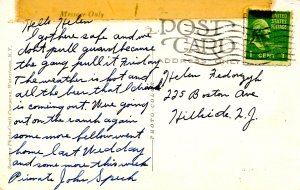 Message Only
POST CARD
ADDRESS ONLY
1 CENT 1
Hello Helen
I got here safe and we
don't pull guard because
the gang pull it Friday
The weather is hot and
all the beer that I drink
is coming out. Were going
out on the ranch again
some more fellows went
home last Wed day
and some more this week
Private John Speck
Helen Fedorzgh
225 Boston Ave
Hillside N.J.